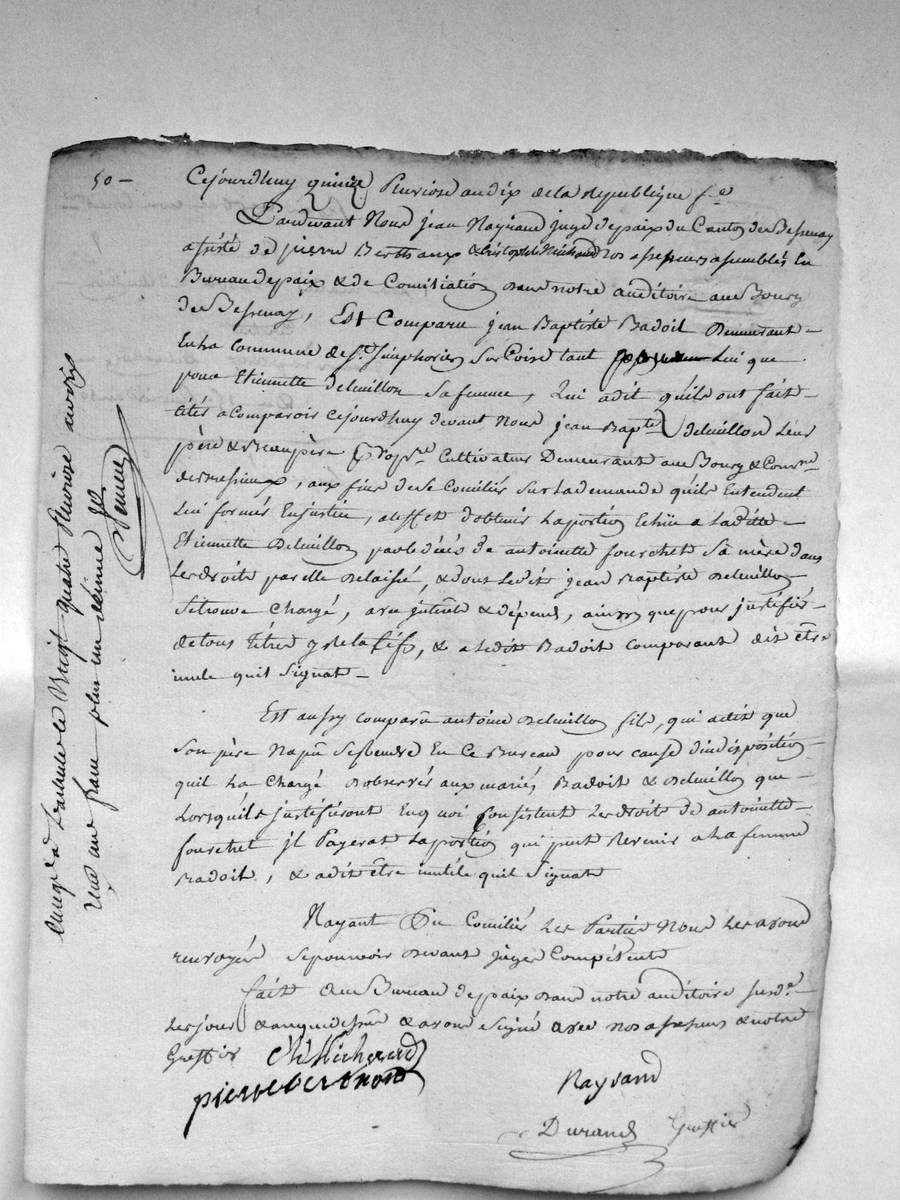 50 -
Cejourdhuy quinze pluviose an dix de la republique f.se
Pardevant Nous jean Raynaud juge de paix du Canton de Bessenay
assisté de pierre Berthaux & Cristophe Michaud Nos assesseurs assemblés En
Bureau de paix & de Conciliation dans notre auditoire au Bourg
de Bessenay, Est Comparu jean Baptiste Badoil Demeurant
En La Commune de St. Simphorien Sur Coise tant pour Lui que
pour Etiennette Delmillon Sa femme, Qui a dit quils ont fait
Cités a Comparoir Cejourdhuy devant Nous jean Bapte. Delmillon Leur
père & Beaupère Propre. Cultivateur Demeurant au Bourg & Comne.
de aux fins de Se Conciliés Sur La demande quils Entendent
Lui formés En justice, a leffet dobtenir La portion Echüe a Ladite
Etiennette Delmillon par le décès de antoinette fourchet Sa mère dans
Les droits par elle Delaissé, & dont Ledit jean Baptiste Delmillon
Se trouve Chargé, avec intérêts & dépens, ainssy que pour justifié
de tous titres & a Ledit Badoit Comparant dit être
inutile quil Signat -
Est aussy Comparu antoine Delmillon fils, qui a dit que
Son père Na pu Se Rendre En Ce Bureau pour cause dindisposition
quil La Chargé dobservés aux mariés Badoit & Delmillon que
Lorsquils justifiront En quoi Consistent Les droits de antoinette
fourchet il Payerat La portion qui peut Revenir a La femme
Badoit, & a dit être inutile quil Signat
Nayant Pu Conciliés Les Parties Nous Les avons
renvoyés Se pourvoir devant juges Compétents
fait Au Bureau de paix dans notre auditoire Susd.
Les jour & an que dessus & avons Signé avec nos assesseurs & notre
Greffier Ch Michaud
pierre berthaud
Raynaud
Durand Greffier
Enrgé. à Larbresle le Vingt quatre pluviose an dix
Reçu un franc plus un décime